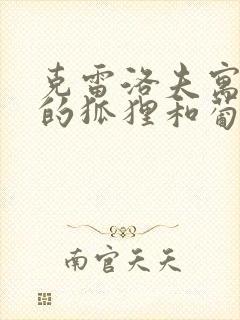 克雷洛夫寓
的狐狸和葡
南官天天